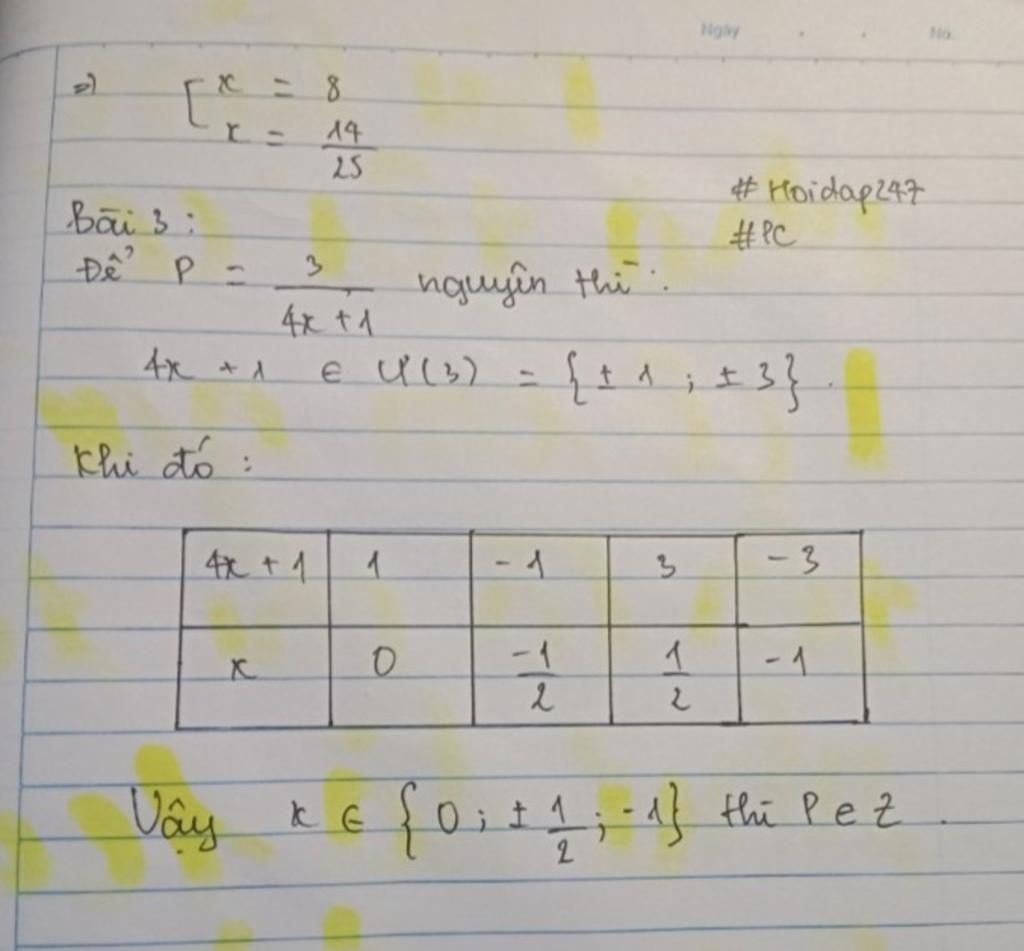 Ngày . . No.
=> [ x = 8
x = 14/25
# Hoidap247
#PC
Bài 3 :
Để P = 3/(4x + 1) nguyên thì :
4x + 1 ∈ Ư(3) = {± 1 ; ± 3} .
Khi đó :
4x + 1 1 - 1 3 - 3
x 0 -1/2 1/2 -1
Vậy x ∈ {0 ; ± 1/2 ; -1} thì P ∈ Z .